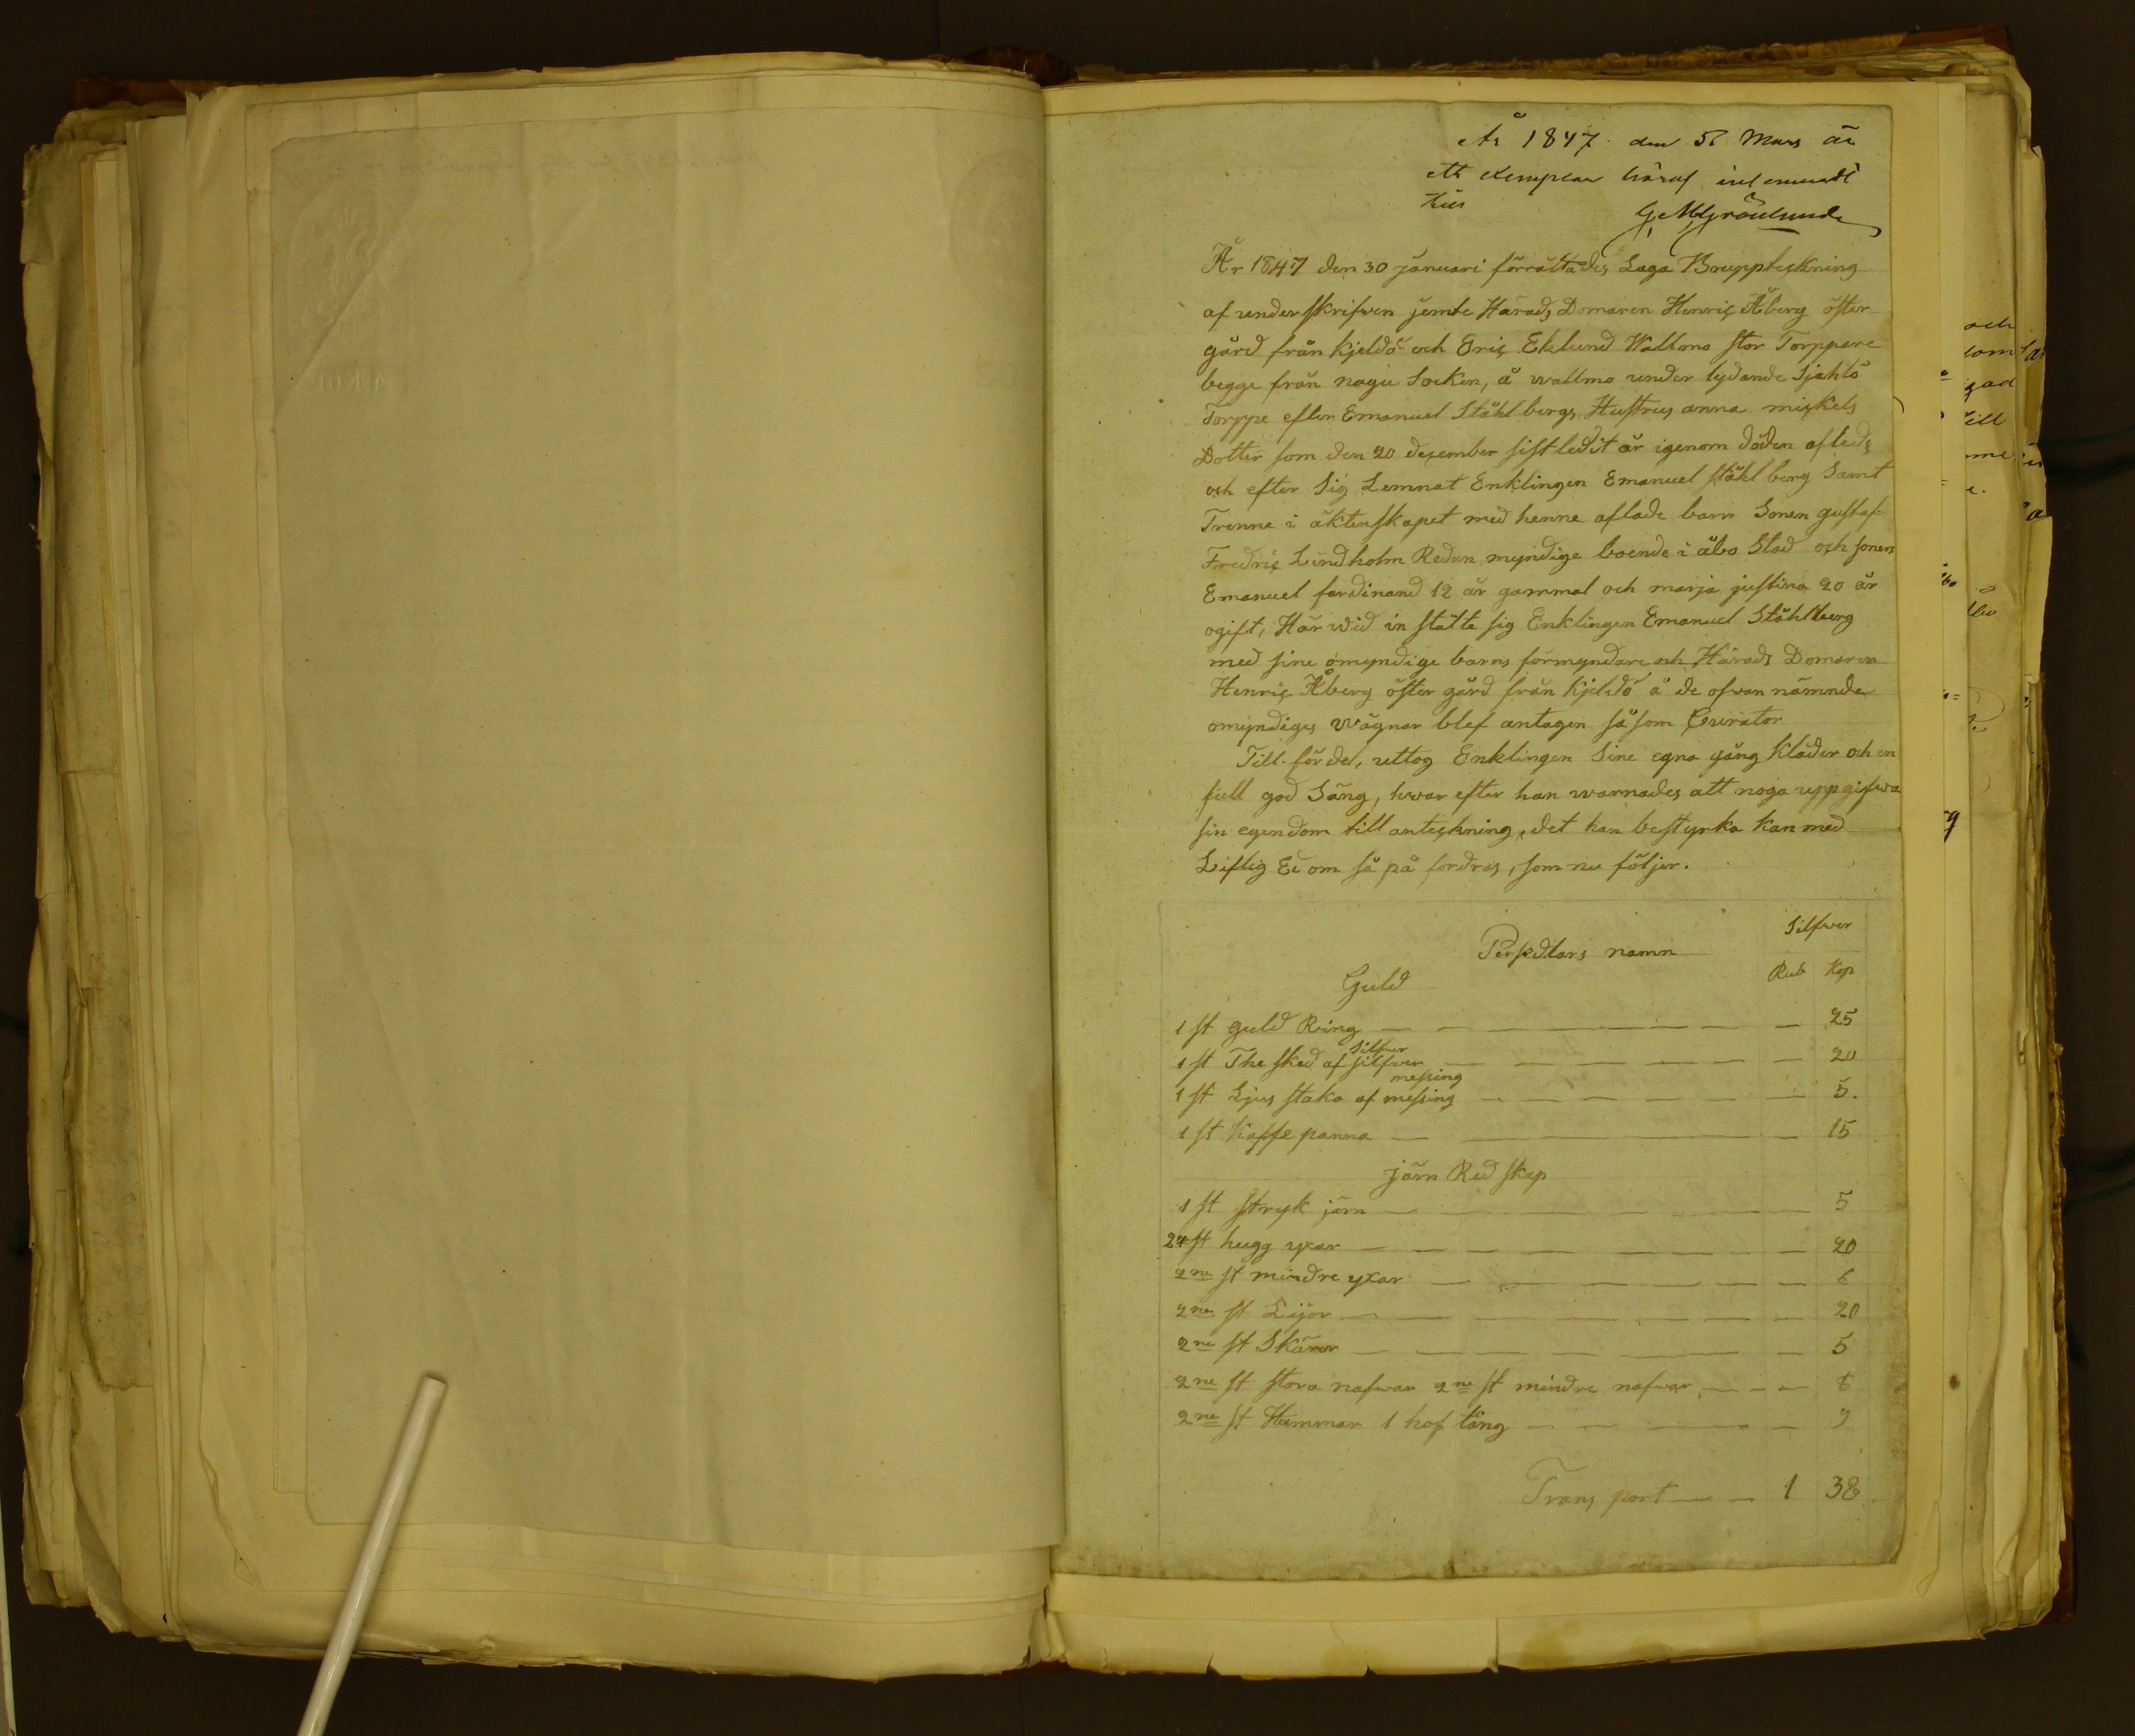 År 1847 den 5 Mars är
ett exemplar häraf inlemnadt
År 1847 den 30 januari förrättades Laga Bouppteckning
af underskrifven jemte Härads Domaren Henric Åberg öster
gård från Kjeldö och Eric Eklund Wallmo stor Torppare
begge från nagu Socken, å wallmo under lydande Sjählö
Torppe efter Emanuel Ståhlbergs Hustrus anna mickels
Dotter som den 20 desember sistledit år igenom döden afleds
och efter Sig Lemnat Enklingen Emanuel ståhlberg Samt
Trenne i äktenskapet med henne aflade barn Sonen gustaf
Fredric Lindholm Redan myndige boende i åbo Stad och sonen
Emanuel ferdinand 12 år gammal och marja justina 20 år
ogift, Här wid in stälte sig Enklingen Emanuel Ståhlberg
med sine omyndige barns förmyndare och Härads Domaren
Henric Åberg öster gård från Kjeldö å de ofvan nämnde
omyndiges wägnar blef antagen såsom Curator
Till fördel, uttog Enklingen Sine egna gång kläder och en
full god Säng, hvar efter han warnades att noga uppgifwa
sin egendom till anteckning, det han bestyrka kan med
Liflig Ed om så på fordras, som nu följer.
Silfver
namn
Rub Kop
Guld
1 st guld Ring 25
Silfver
1 st The sked af silfver 20
messing
1 st Ljus stake af messing 5.
1 st Kaffe panna 15
järn Red skap
1 st stryk järn 5
st hugg yxar 20
2ne st mindre yxar 6
2ne st Lijor 20
2ne st Skäror 5
2ne st stora nafwar 2ne st mindre nafwar 8
2ne st Hammar 1 hof tång 9
Transport 1 38